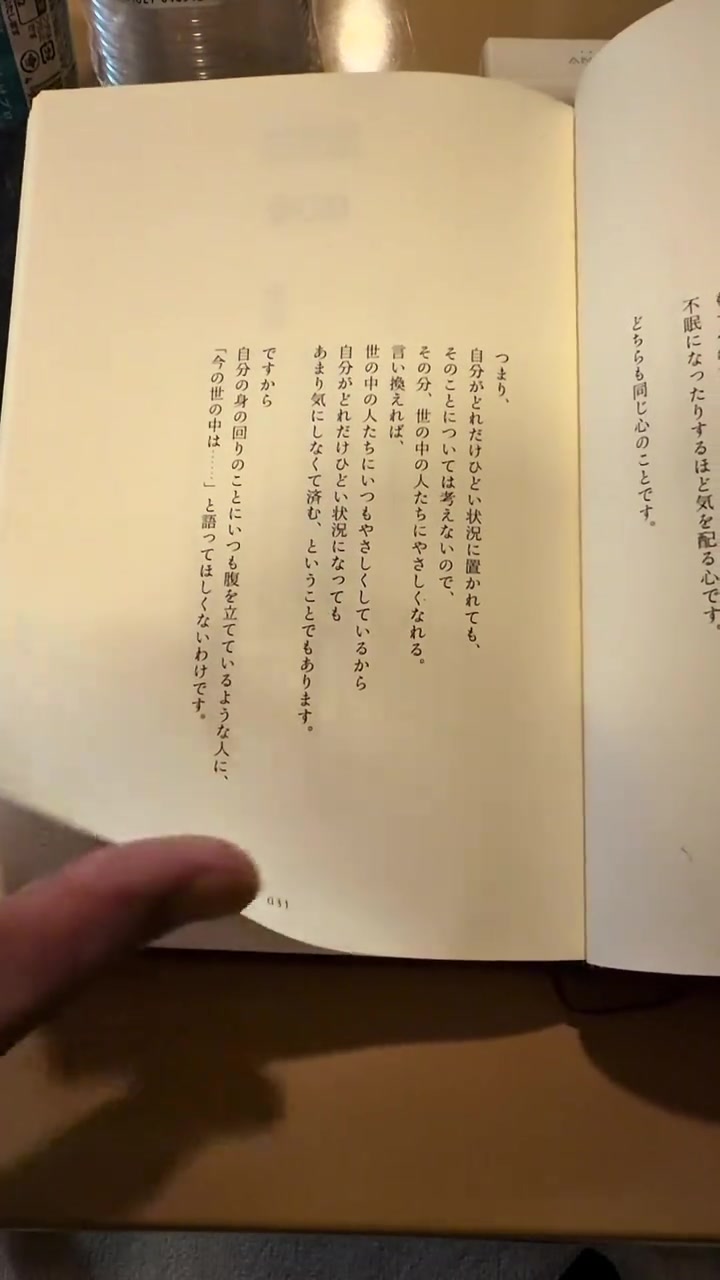 不眠になったりするほど気を配る心です。
どちらも同じ心のことです。
つまり、
自分がどれだけひどい状況に置かれても、
そのことについては考えないので、
その分、世の中の人たちにやさしくなれる。
言い換えれば、
世の中の人たちにいつもやさしくしているから
自分がどれだけひどい状況になっても
あまり気にしなくて済む、ということでもあります。
ですから
自分の身の回りのことにいつも腹を立てているような人に、
「今の世の中は……」と語ってほしくないわけです。
031